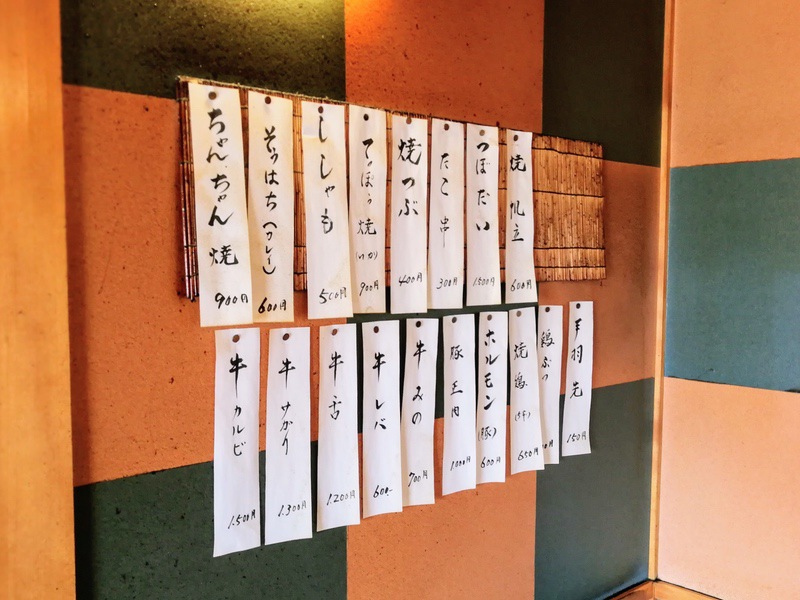 焼帆立
600円
つぼだい
1500円
たこ串
300円
焼つぶ
400円
てっぽう焼
(いか)
900円
ししゃも
500円
そうはち(カレイ)
600円
ちゃんちゃん焼
900円
手羽元
150円
鶏ぶつ
焼鶏
650円
ホルモン(豚)
600円
豚正肉
1000円
牛みの
700円
牛レバ
600-
牛舌
1.200円
牛サガリ
1.300円
牛カルビ
1.500円